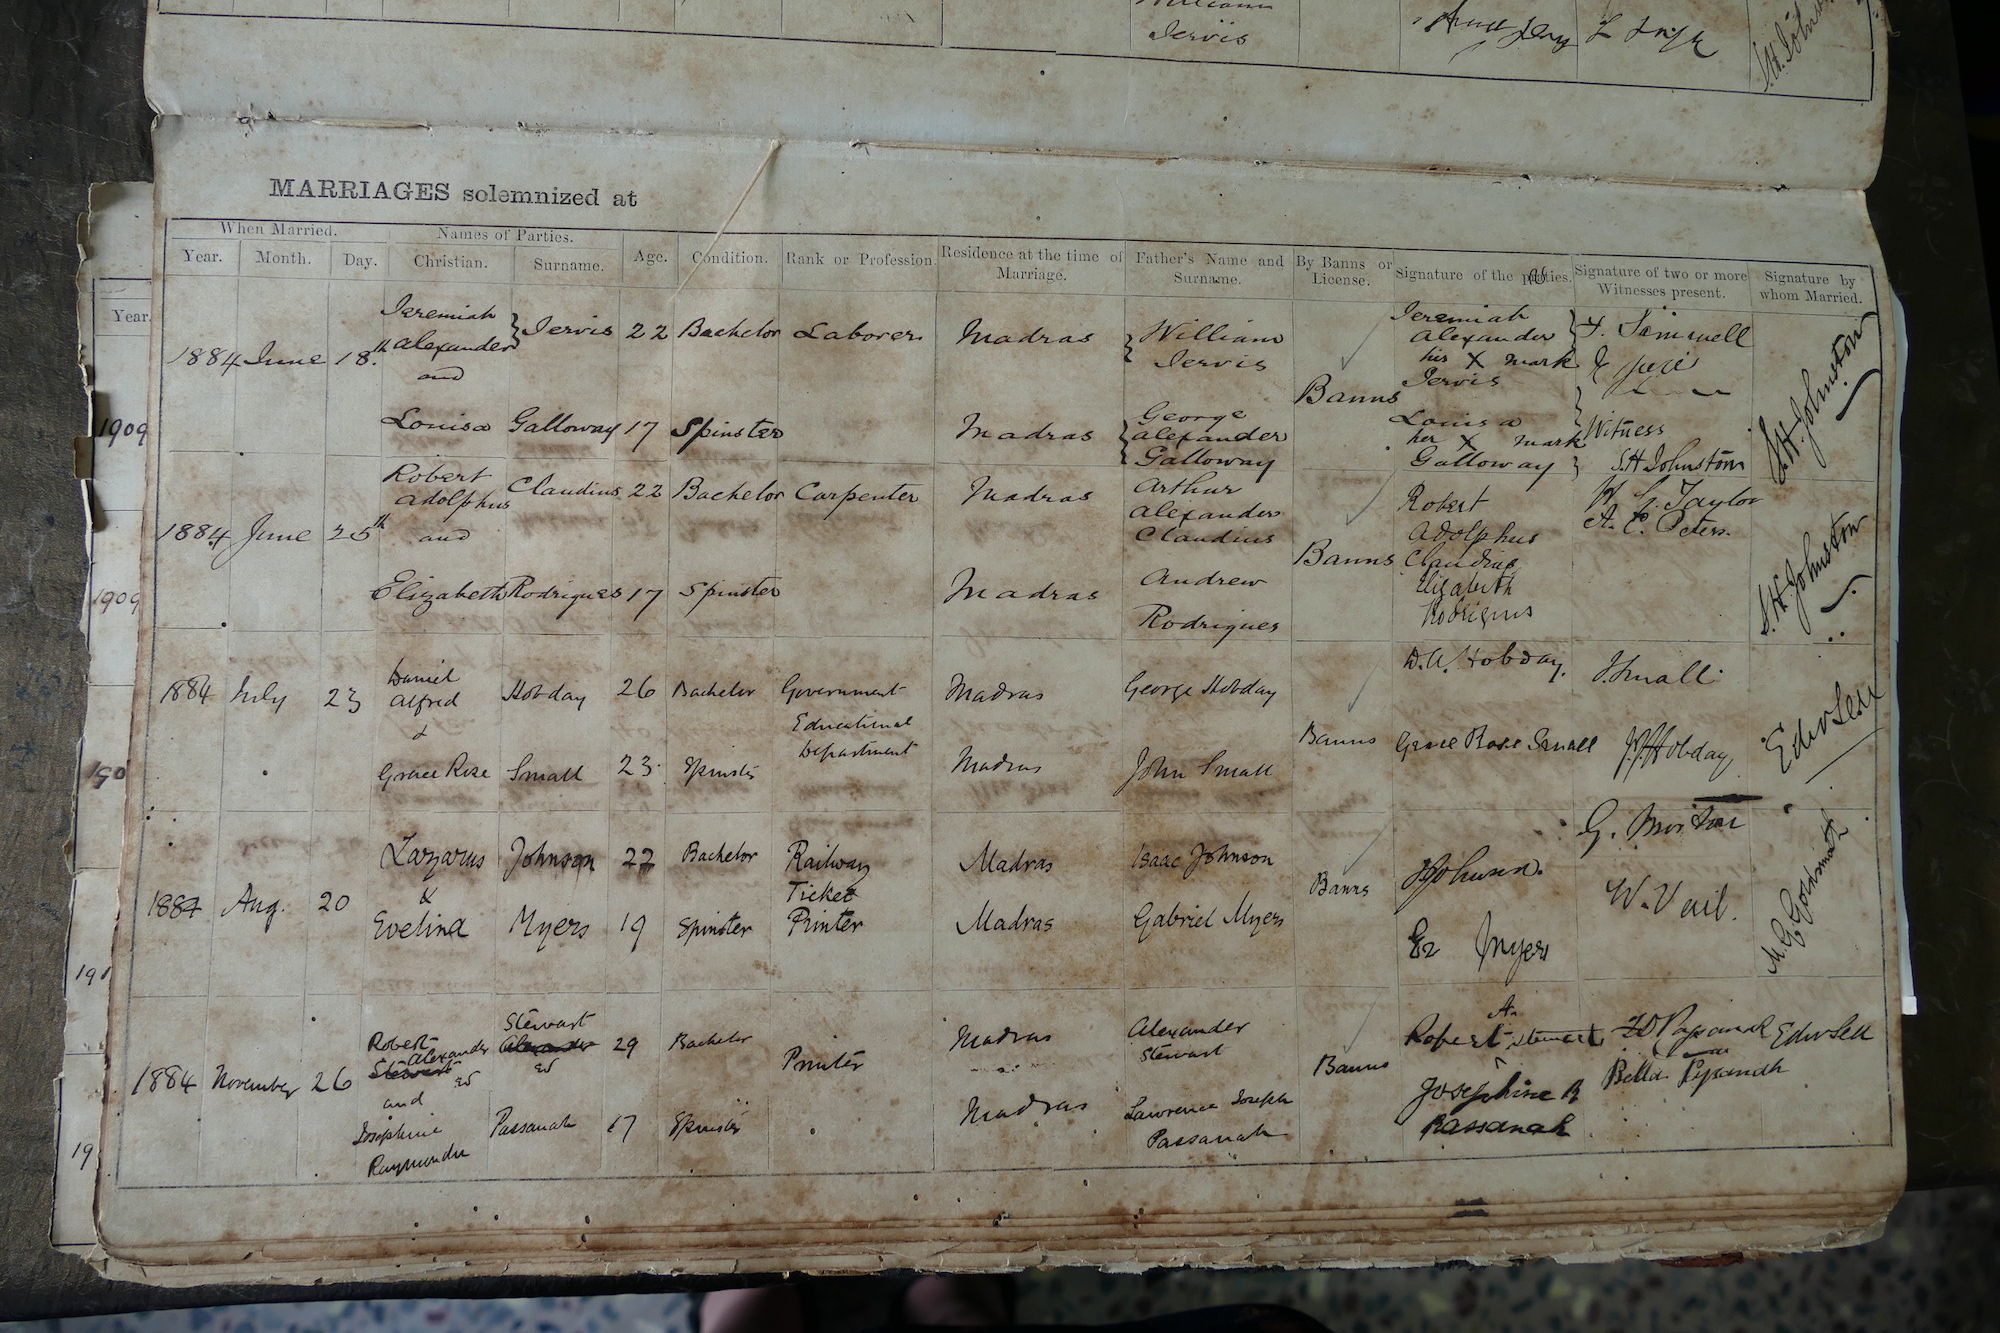 William
Jervis
S.H. Johnston
MARRIAGES solemnized at
When Married. Names of Parties.
Year. Month. Day. Christian. Surname. Age. Condition. Rank or Profession. Residence at the time of Marriage. Father's Name and Surname. By Banns or License. Signature of the parties. Signature of two or more Witnesses present. Signature by whom Married.
Year.
1909
1909
190
191
19
1884 June 18th
Jeremiah
Alexander } Jervis 22 Bachelor Laborer Madras
and
William
Jervis
Banns
Jeremiah
Alexander
his X mark
Jervis
Louisa Galloway 17 Spinster Madras
George
Alexander
Galloway
Louisa
her X mark
Galloway
Witness
S.H Johnston
S.H. Johnston
1884 June 25th
Robert
Adolphus Claudius 22 Bachelor Carpenter Madras
and
Arthur
Alexander
Claudius
Banns
Robert
Adolphus
Claudius
W. G. Taylor
A. E. Peters.
Elizabeth Rodrigues 17 Spinster Madras
Andrew
Rodrigues
Elizabeth
Rodrigues
S.H. Johnston
1884 July 23
Daniel
Alfred Hobday 26 Bachelor Government
Educational
Department
Madras George Hobday
&
Banns
D.A. Hobday.
J. Small
Grace Rose Small 23 Spinster Madras John Small
Grace Rose Small
Hobday
Edw Sell
1884 Aug. 20
Lazarus Johnson 22 Bachelor Railway
Ticket
Printer
Madras Isaac Johnson
&
Banns
Johnson.
G.
W. Vail.
Evelina Myers 19 Spinster Madras Gabriel Myers
Myers
M. G. Goldsmith
1884 November 26
Robert
Alexander
Stewart
ES
Stewart
Alexander
ES
29 Bachelor Printer Madras
Alexander
Stewart
and
Banns
A.
Robert Stewart
Edw Sell
Josephine
Raymunda
Passanah 17 Spinster Madras
Lawrence Joseph
Passanah
Josephine R
Passanah
Bella